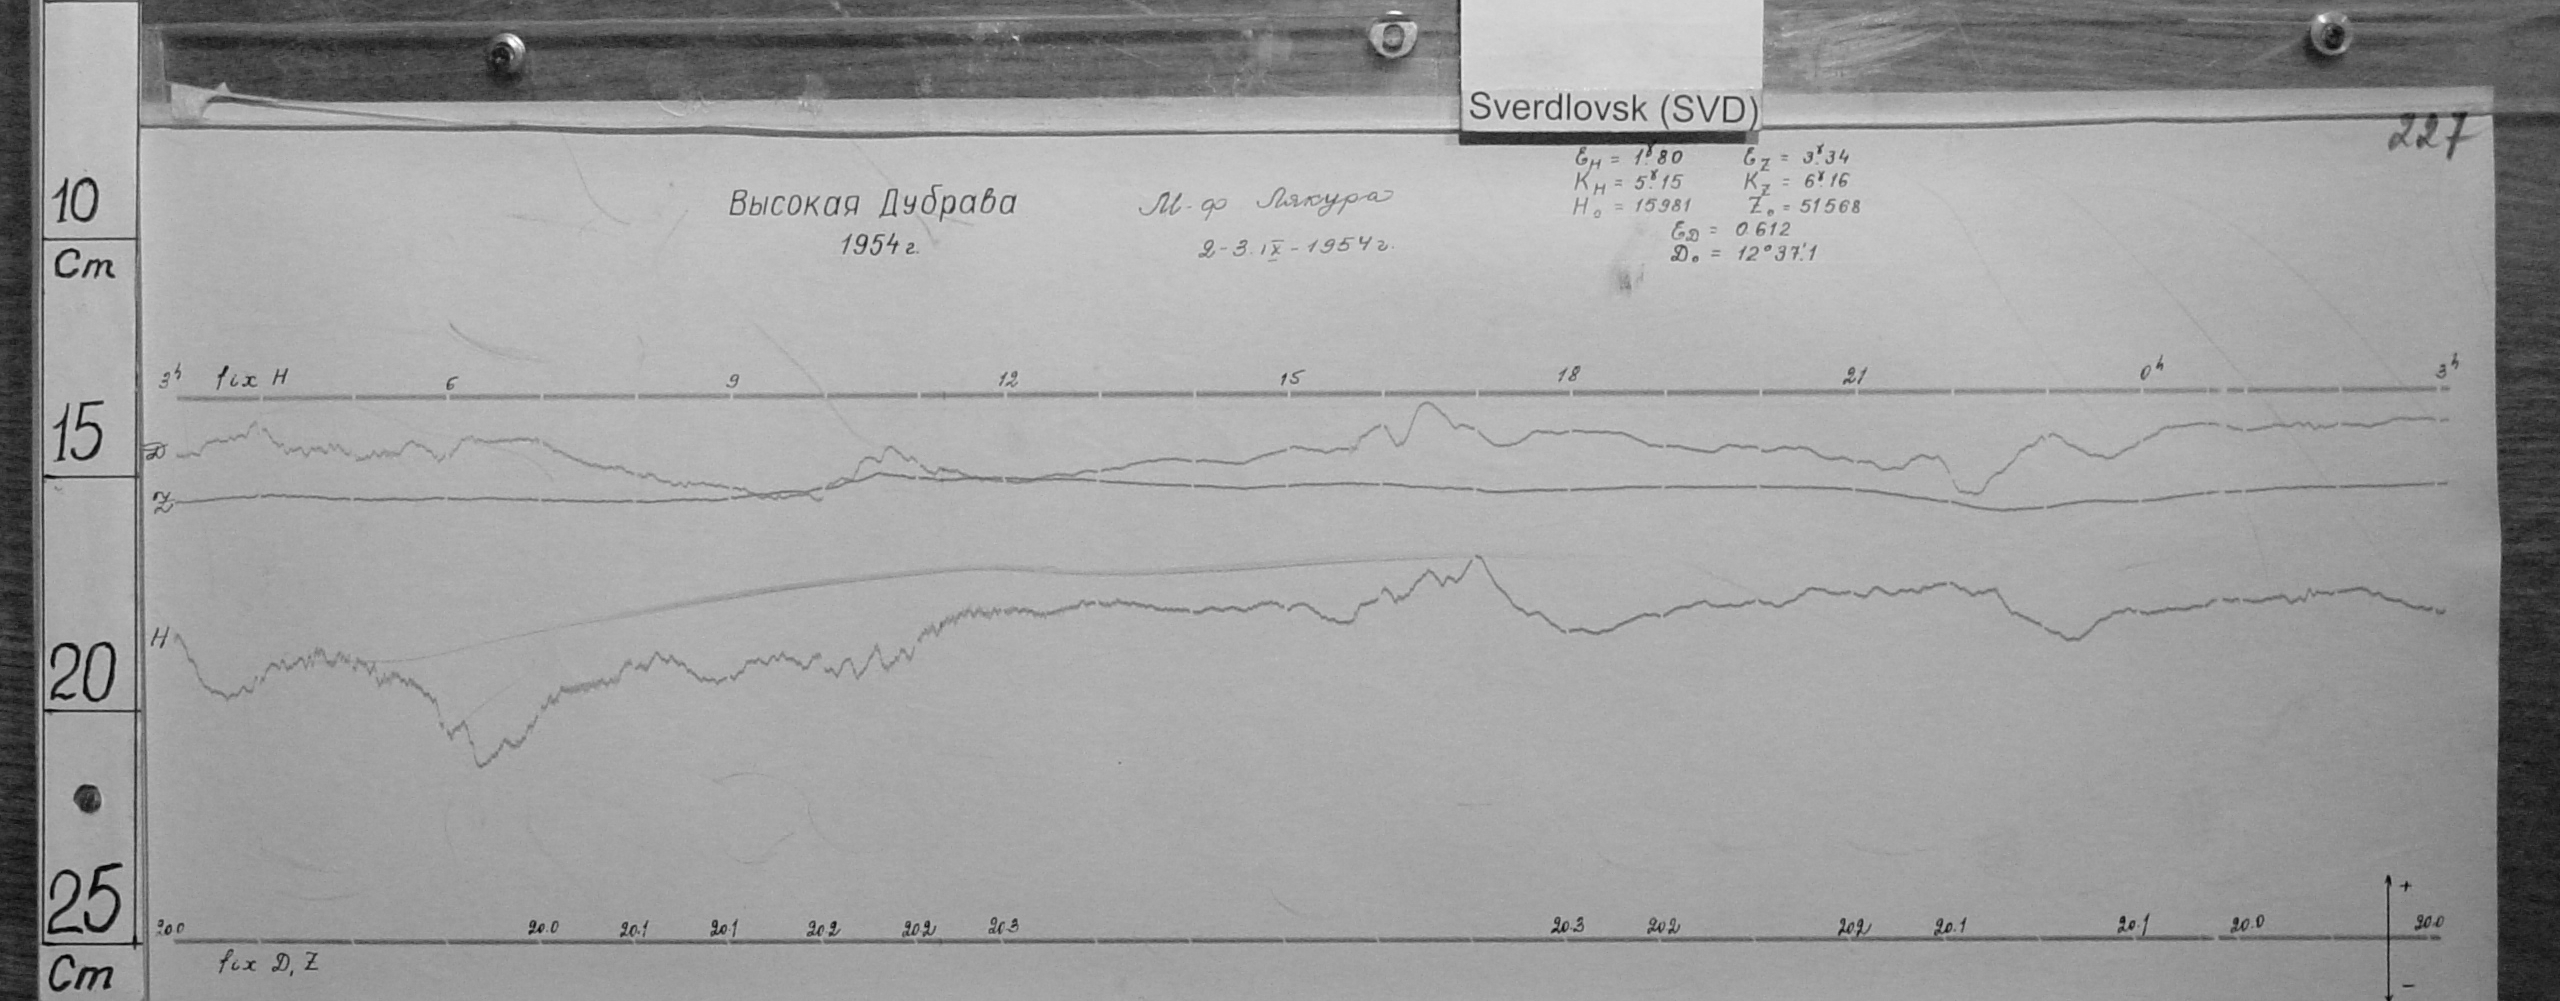 Sverdlovsk (SVD)
227
10
Cm
15
20
25
Cm
Высокая Дубрава
1954 г.
М-ф Лякура
2-3.IX-1954г.
ℰH = 1ˠ.80 ℰZ = 3ˠ.34
KH = 5ˠ.15 KZ = 6ˠ.16
H₀ = 15981 Z₀ = 51568
ℰD = 0.612
D₀ = 12°37'.1
3ʰ fix H 6 9 12 15 18 21 0ʰ 3ʰ
D
Z
H
20.0 20.0 20.1 20.1 20.2 20.2 20.3 20.3 20.2 20.2 20.1 20.1 20.0 20.0
fix D, Z
+
−